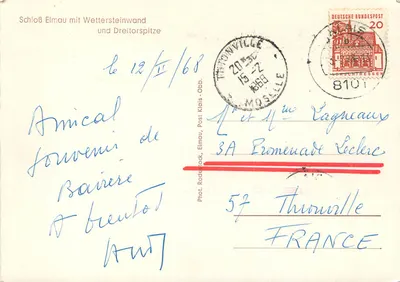 Schloß Elmau mit Wettersteinwand
und Dreitorspitze
le 12/II/68
Amical
souvenir de
Bavière
A bientôt
THIONVILLE
20H30
15-2
1968
MOSELLE
DEUTSCHE BUNDESPOST
20
8101
Mr et Mme Lagneaux
3A Promenade Leclerc
57 Thionville
FRANCE
Elmau, Post Klais-Obb.